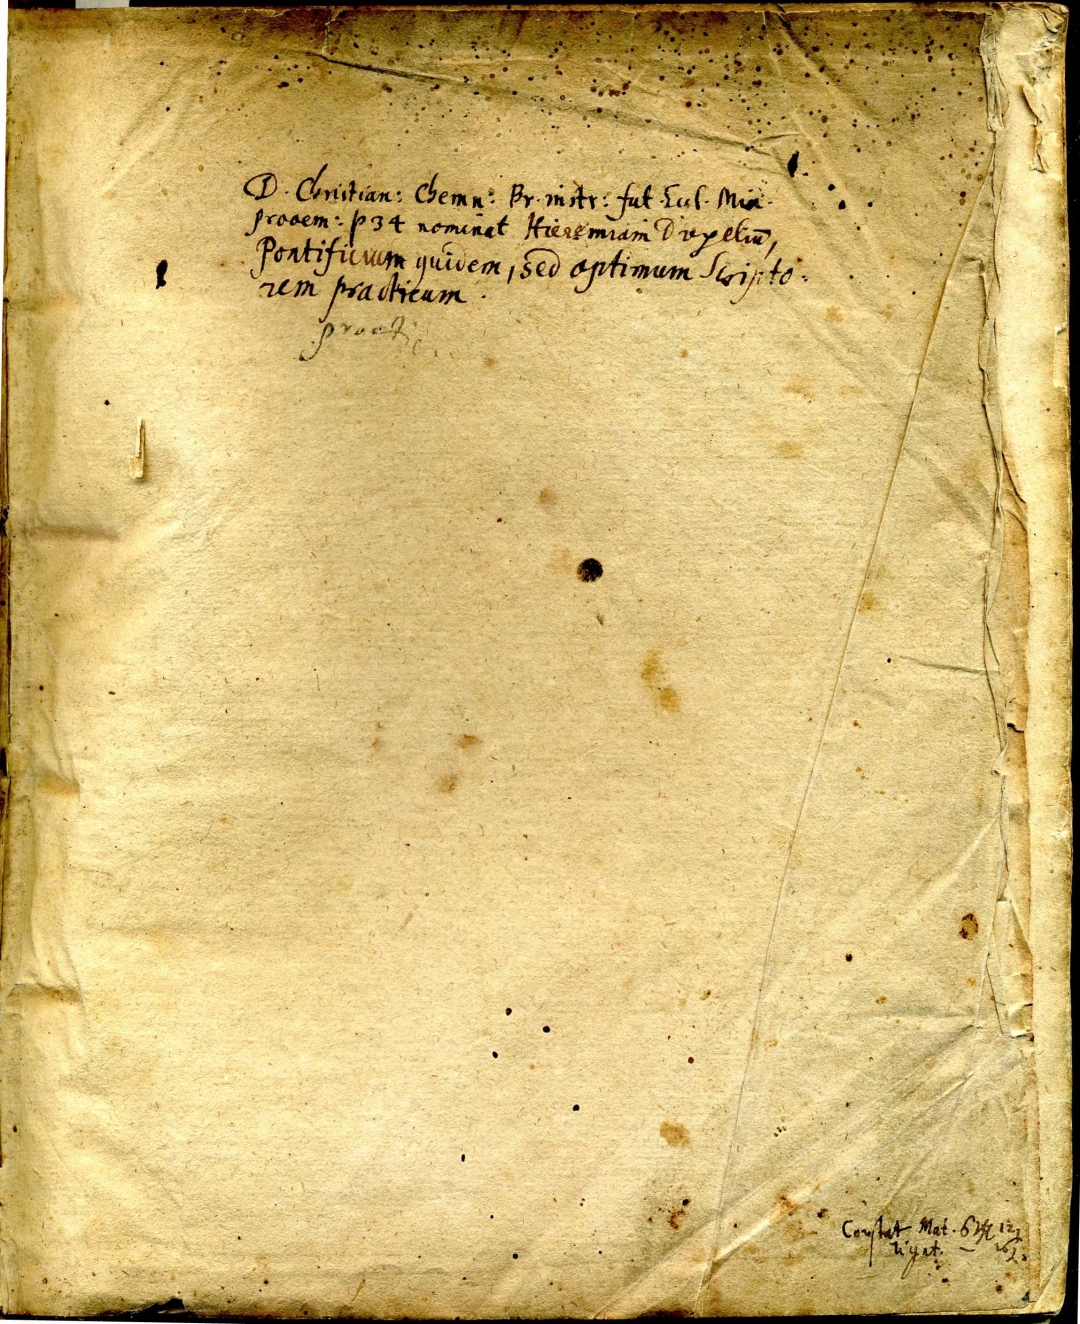 D. Christian: Chemn: Br. instr: fut. Eccl. Min.
prooem: p 34 nominat Hieremiam Drexeliū,
Pontificium quidem, sed optimum Scripto-
rem practicum.
practic
Constat Mat. 6
ligat.